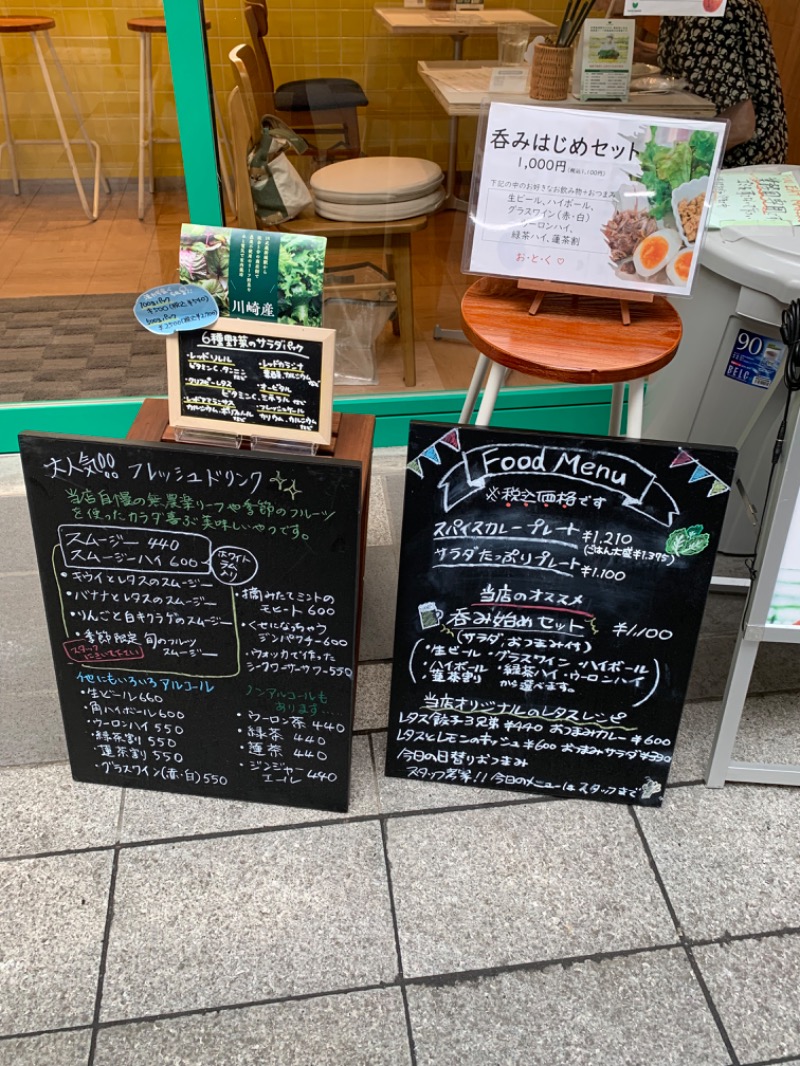 呑みはじめセット
1,000円(税込1,100円)
下記の中のお好きなお飲み物+おつまみ
生ビール、ハイボール、
グラスワイン(赤・白)
ウーロンハイ、
緑茶ハイ、蓮茶割
お・と・く♡
川崎産
6種野菜のサラダパック
・レッドソレル
ビタミンC、タンニン
など
・クリスピーレタス
ビタミンC
など
・レッドカラシナ
・オービタル
ミネラル
など
・フレッシュケール
カリウム、カルシウム
など
大人気!! フレッシュドリンク
当店自慢の無農薬リーフや季節のフルーツ
を使ったカラダ喜ぶ美味しいやつです。
スムージー 440
スムージーハイ 600
ホワイト
ラム
入り
・キウイとレタスのスムージー
・バナナとレタスのスムージー
・りんごと白キクラゲのスムージー
・季節限定 旬のフルーツ
スムージー
スタッフ
にきいて下さい
・摘みたてミントの
モヒート 600
・くせになっちゃう
ジンパウチー 600
・ウォッカで作った
シークワーサーサワー 550
他にもいろいろアルコール
・生ビール 660
・角ハイボール 600
・ウーロンハイ 550
・緑茶割 550
・蓮茶割 550
・グラスワイン(赤・白) 550
ノンアルコールも
あります…
・ウーロン茶 440
・緑茶 440
・蓮茶 440
・ジンジャー
エール 440
Food Menu
※税込価格です
スパイスカレープレート ¥1,210
(ごはん大盛¥1,375)
サラダたっぷりプレート ¥1,100
当店のオススメ
呑み始めセット ¥1,100
(サラダ、おつまみ付)
・生ビール・グラスワイン・ハイボール
・ハイボール・緑茶ハイ・ウーロンハイ
・蓮茶割り から選べます。
当店オリジナルのレタスレシピ
レタス餃子3兄弟 ¥440 おつまみカレー ¥600
レタスとレモンのキッシュ ¥600 おつまみサラダ ¥330
今日の日替りおつまみ
スタッフ考案!! 今日のメニューはスタッフまで
90
PELC